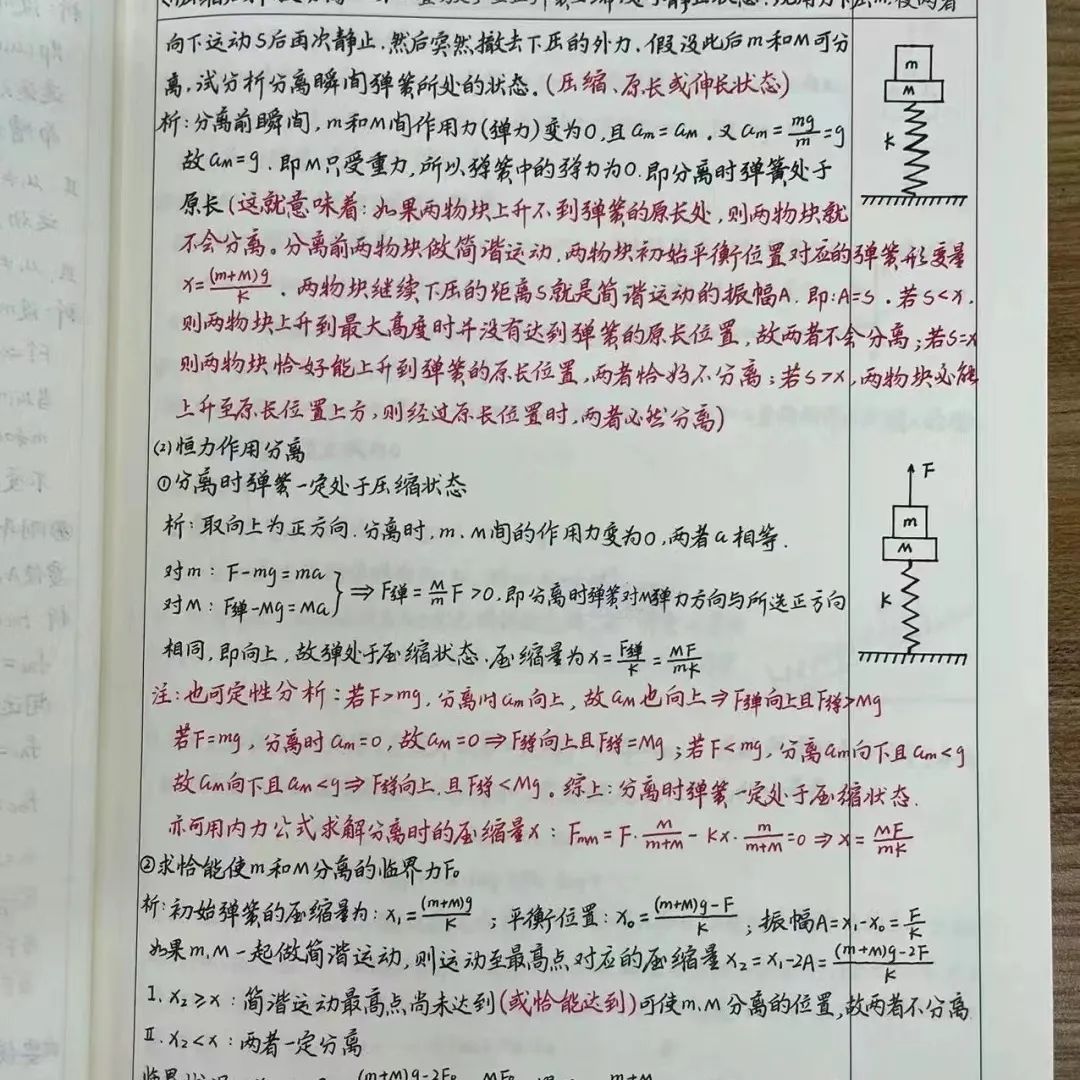 向下运动S后再次静止.然后突然撤去下压的外力.假设此后m和M可分
离,试分析分离瞬间弹簧所处的状态.(压缩、原长或伸长状态)
析:分离前瞬间,m和M间作用力(弹力)变为0,且am=aM.又am=mg/m=g
故aM=g.即M只受重力,所以弹簧中的弹力为0.即分离时弹簧处于
原长(这就意味着:如果两物块上升不到弹簧的原长处,则两物块就
不会分离。分离前两物块做简谐运动,两物块初始平衡位置对应的弹簧形变量
x=(m+M)g/K.两物块继续下压的距离S就是简谐运动的振幅A.即:A=S.若S<x,
则两物块上升到最大高度时并没有达到弹簧的原长位置,故两者不会分离;若S=x
则两物块恰好能上升到弹簧的原长位置,两者恰好不分离;若S>x,两物块必能
上升至原长位置上方,则经过原长位置时,两者必然分离)
m
M
K
(2)恒力作用分离
①分离时弹簧一定处于压缩状态
析:取向上为正方向.分离时,m、M间的作用力变为0,两者a相等.
对m:F-mg=ma
对M:F弹-Mg=Ma}⇒F弹=M/m F>0.即分离时弹簧对M弹力方向与所选正方向
相同,即向上,故弹处于压缩状态.压缩量为x=F弹/K=MF/mK
F
m
M
K
注:也可定性分析:若F>mg,分离时am向上,故aM也向上⇒F弹向上且F弹>Mg
若F=mg,分离时am=0,故aM=0⇒F弹向上且F弹=Mg;若F<mg,分离am向下且am<g
故aM向下且aM<g⇒F弹向上.且F弹<Mg。综上:分离时弹簧一定处于压缩状态.
亦可用内力公式求解分离时的压缩量x:FmM=F·M/(m+M)-Kx·m/(m+M)=0⇒x=MF/mK
②求恰能使m和M分离的临界力F₀
析:初始弹簧的压缩量为:x₁=(m+M)g/K;平衡位置:x₀=((m+M)g-F)/K;振幅A=x₁-x₀=F/K
如果m,M一起做简谐运动,则运动至最高点对应的压缩量x₂=x₁-2A=((m+M)g-2F)/K
I.x₂≥x:简谐运动最高点尚未达到(或恰能达到)可使m.M分离的位置,故两者不分离
II.x₂<x:两者一定分离